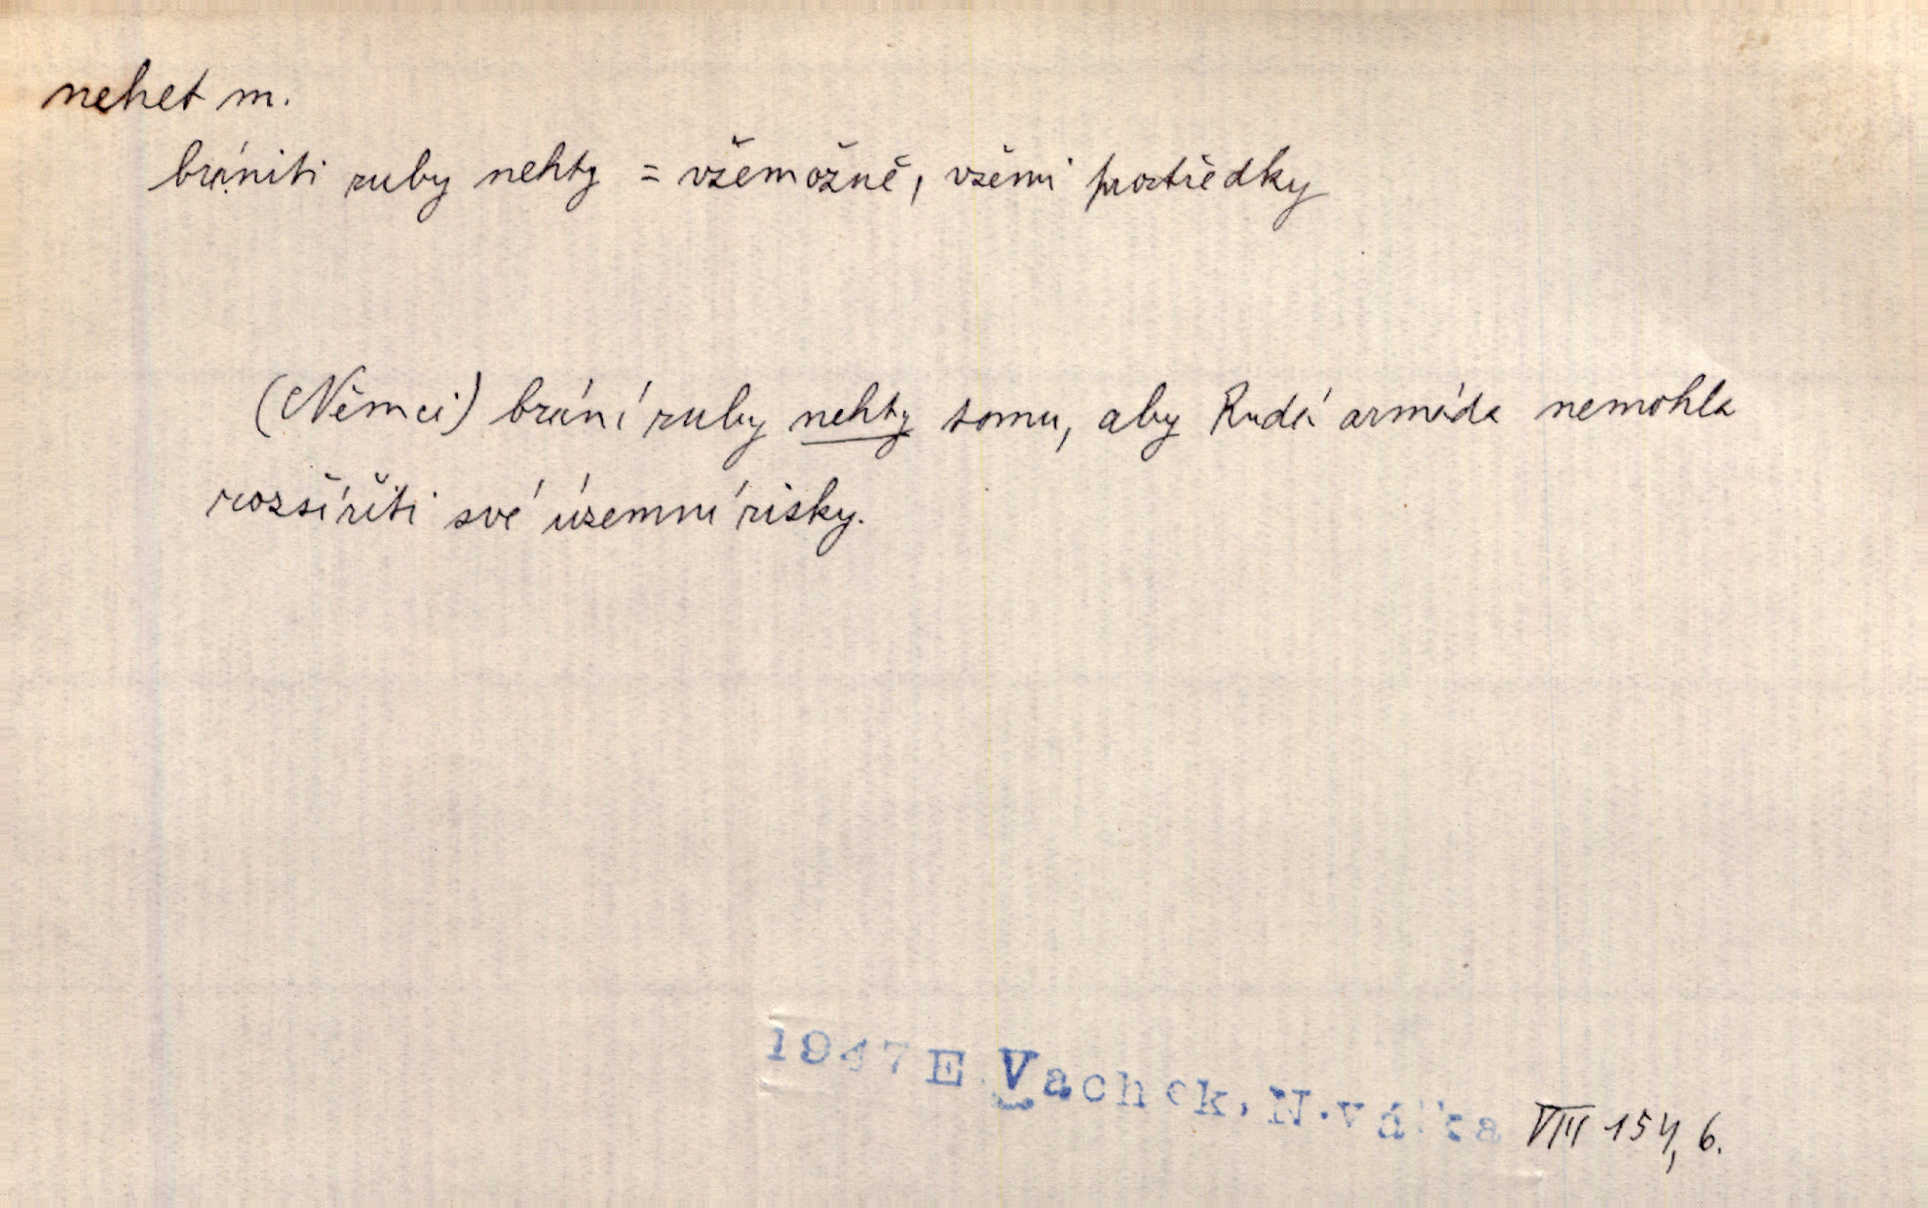 nehet m.
brániti zuby nehty = všemožně, všemi prostředky
(Němci) brání zuby nehty tomu, aby Rudá armáda nemohla
rozšířiti své územní zisky.
1947 E. Vachek, N. válka VIII 154, 6.